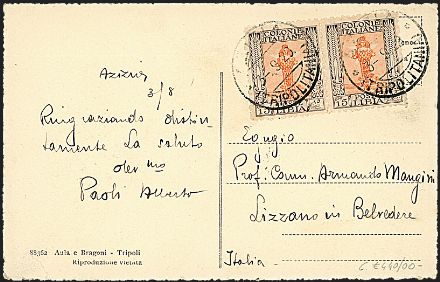 COLONIE
ITALIANE
15 LIBIA
COLONIE
ITALIANE
15 LIBIA
TRIPOLITANIA
TRIPOLITANIA
Azizia
3/8
Ringraziando distin-
tamente La saluto
dev mo
Paoli Alberto
Egregio
Prof. Comm. Armando Mangini
Lizzano in Belvedere
Italia
88362 Aula e Bragoni - Tripoli
Riproduzione vietata